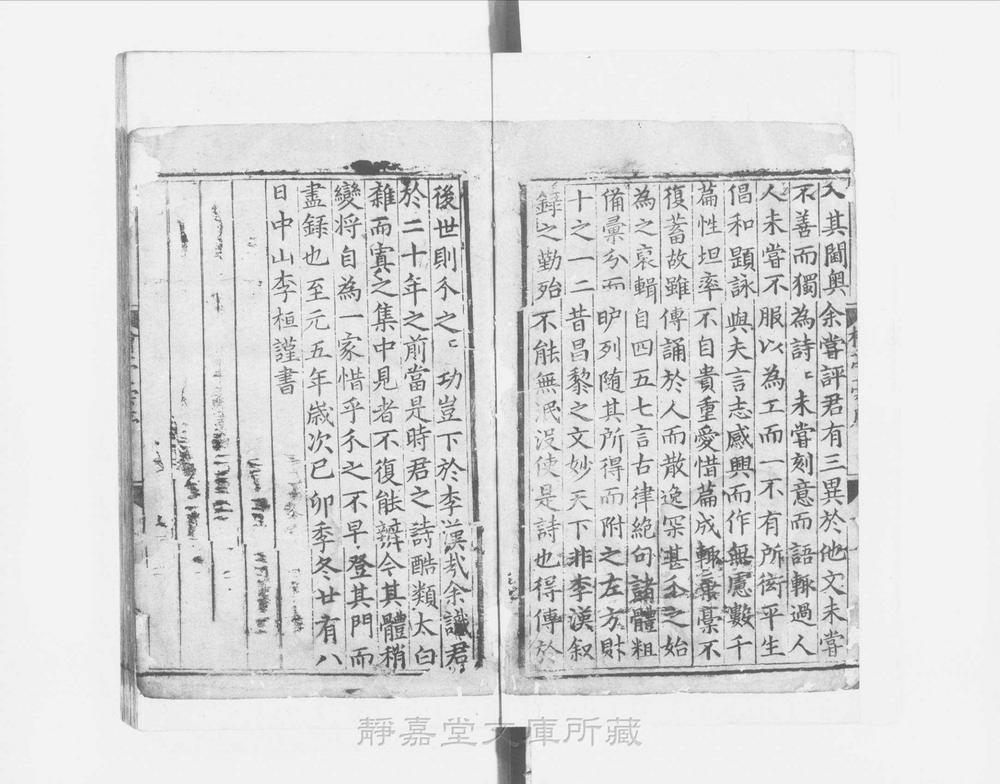 入其閫奧余嘗評君有三異於他文未嘗
不善而獨為詩〻未嘗刻意而語輙過人
人未嘗不服以為工而一不有所衒平生
倡和題詠與夫言志感興而作無慮數千
篇性坦率不自貴重愛惜篇成輙棄稾不
復蓄故雖傳誦於人而散逸罙甚仌之始
為之裒輯自四五七言古律絶句諸體粗
備彙分而昈列随其所得而附之左方財
十之一二昔昌黎之文妙天下非李漢叙
録之勤殆不能無泯没使是詩也得傳於
後世則仌之〻功豈下於李漢㢤余識君
於二十年之前當是時君之詩酷類太白
雜而寘之集中見者不復能辨今其體稍
變将自為一家惜乎仌之不早登其門而
盡録也至元五年歲次己卯季冬廿有八
日中山李桓謹書
靜嘉堂文庫所藏